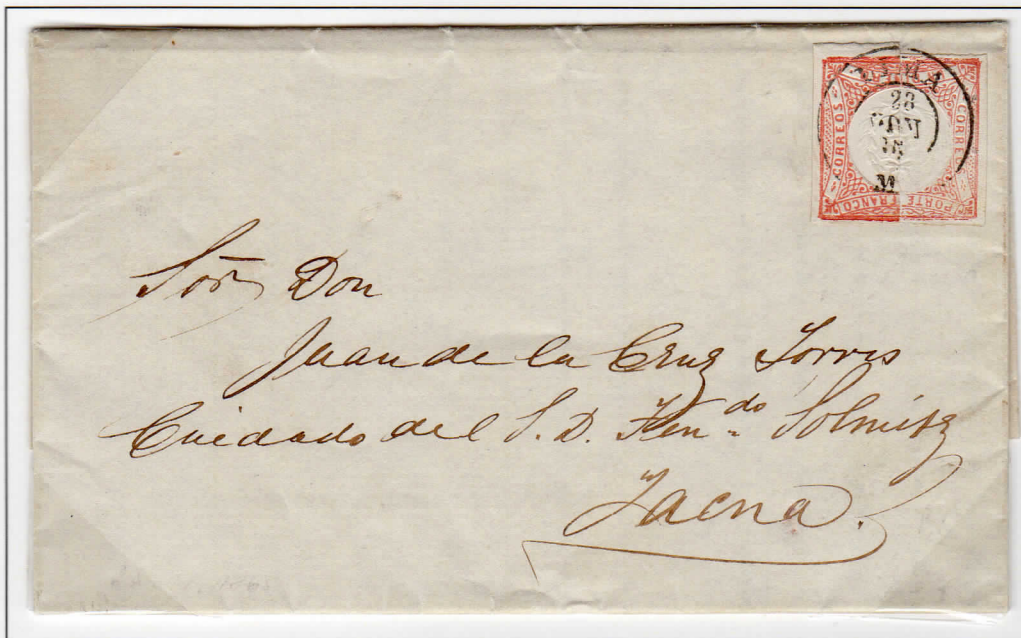 CORREOS
CORREOS
PORTE FRANCO
28
NOV
M
Sor Don
Juan de la Cruz Torres
Cuidado del S. D. Fen.do Solmitz
Tacna.